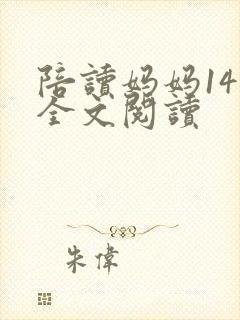 陪讀媽媽14
全文閱讀
朱偉